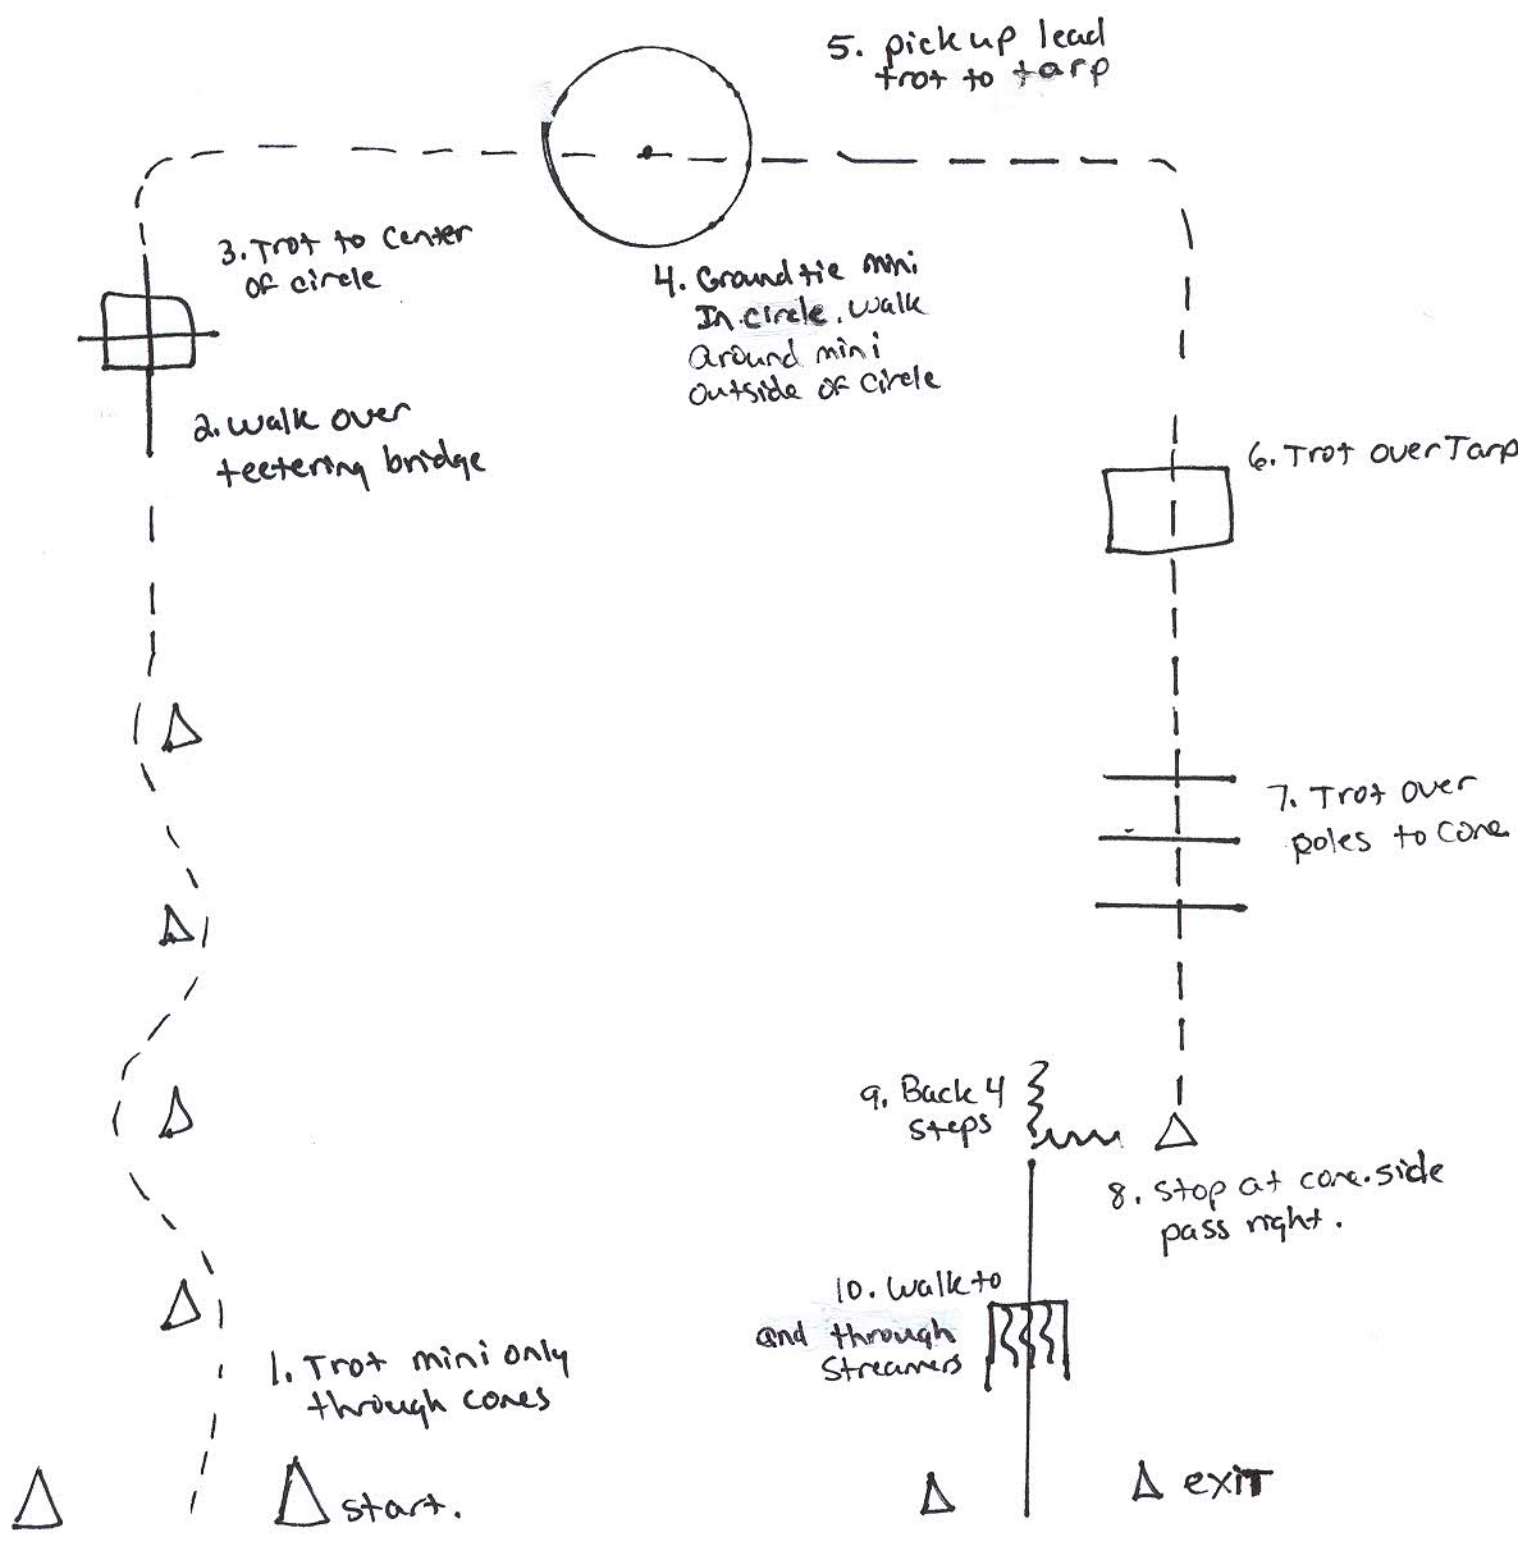 5. pick up lead
trot to tarp
3. Trot to center
of circle
4. Ground tie mini
In circle. walk
around mini
outside of circle
2. walk over
teetering bridge
6. Trot over Tarp
7. Trot over
poles to cone
9. Back 4
steps
8. Stop at cone. side
pass right.
10. Walk to
and through
streamers
1. Trot mini only
through cones
start.
exit